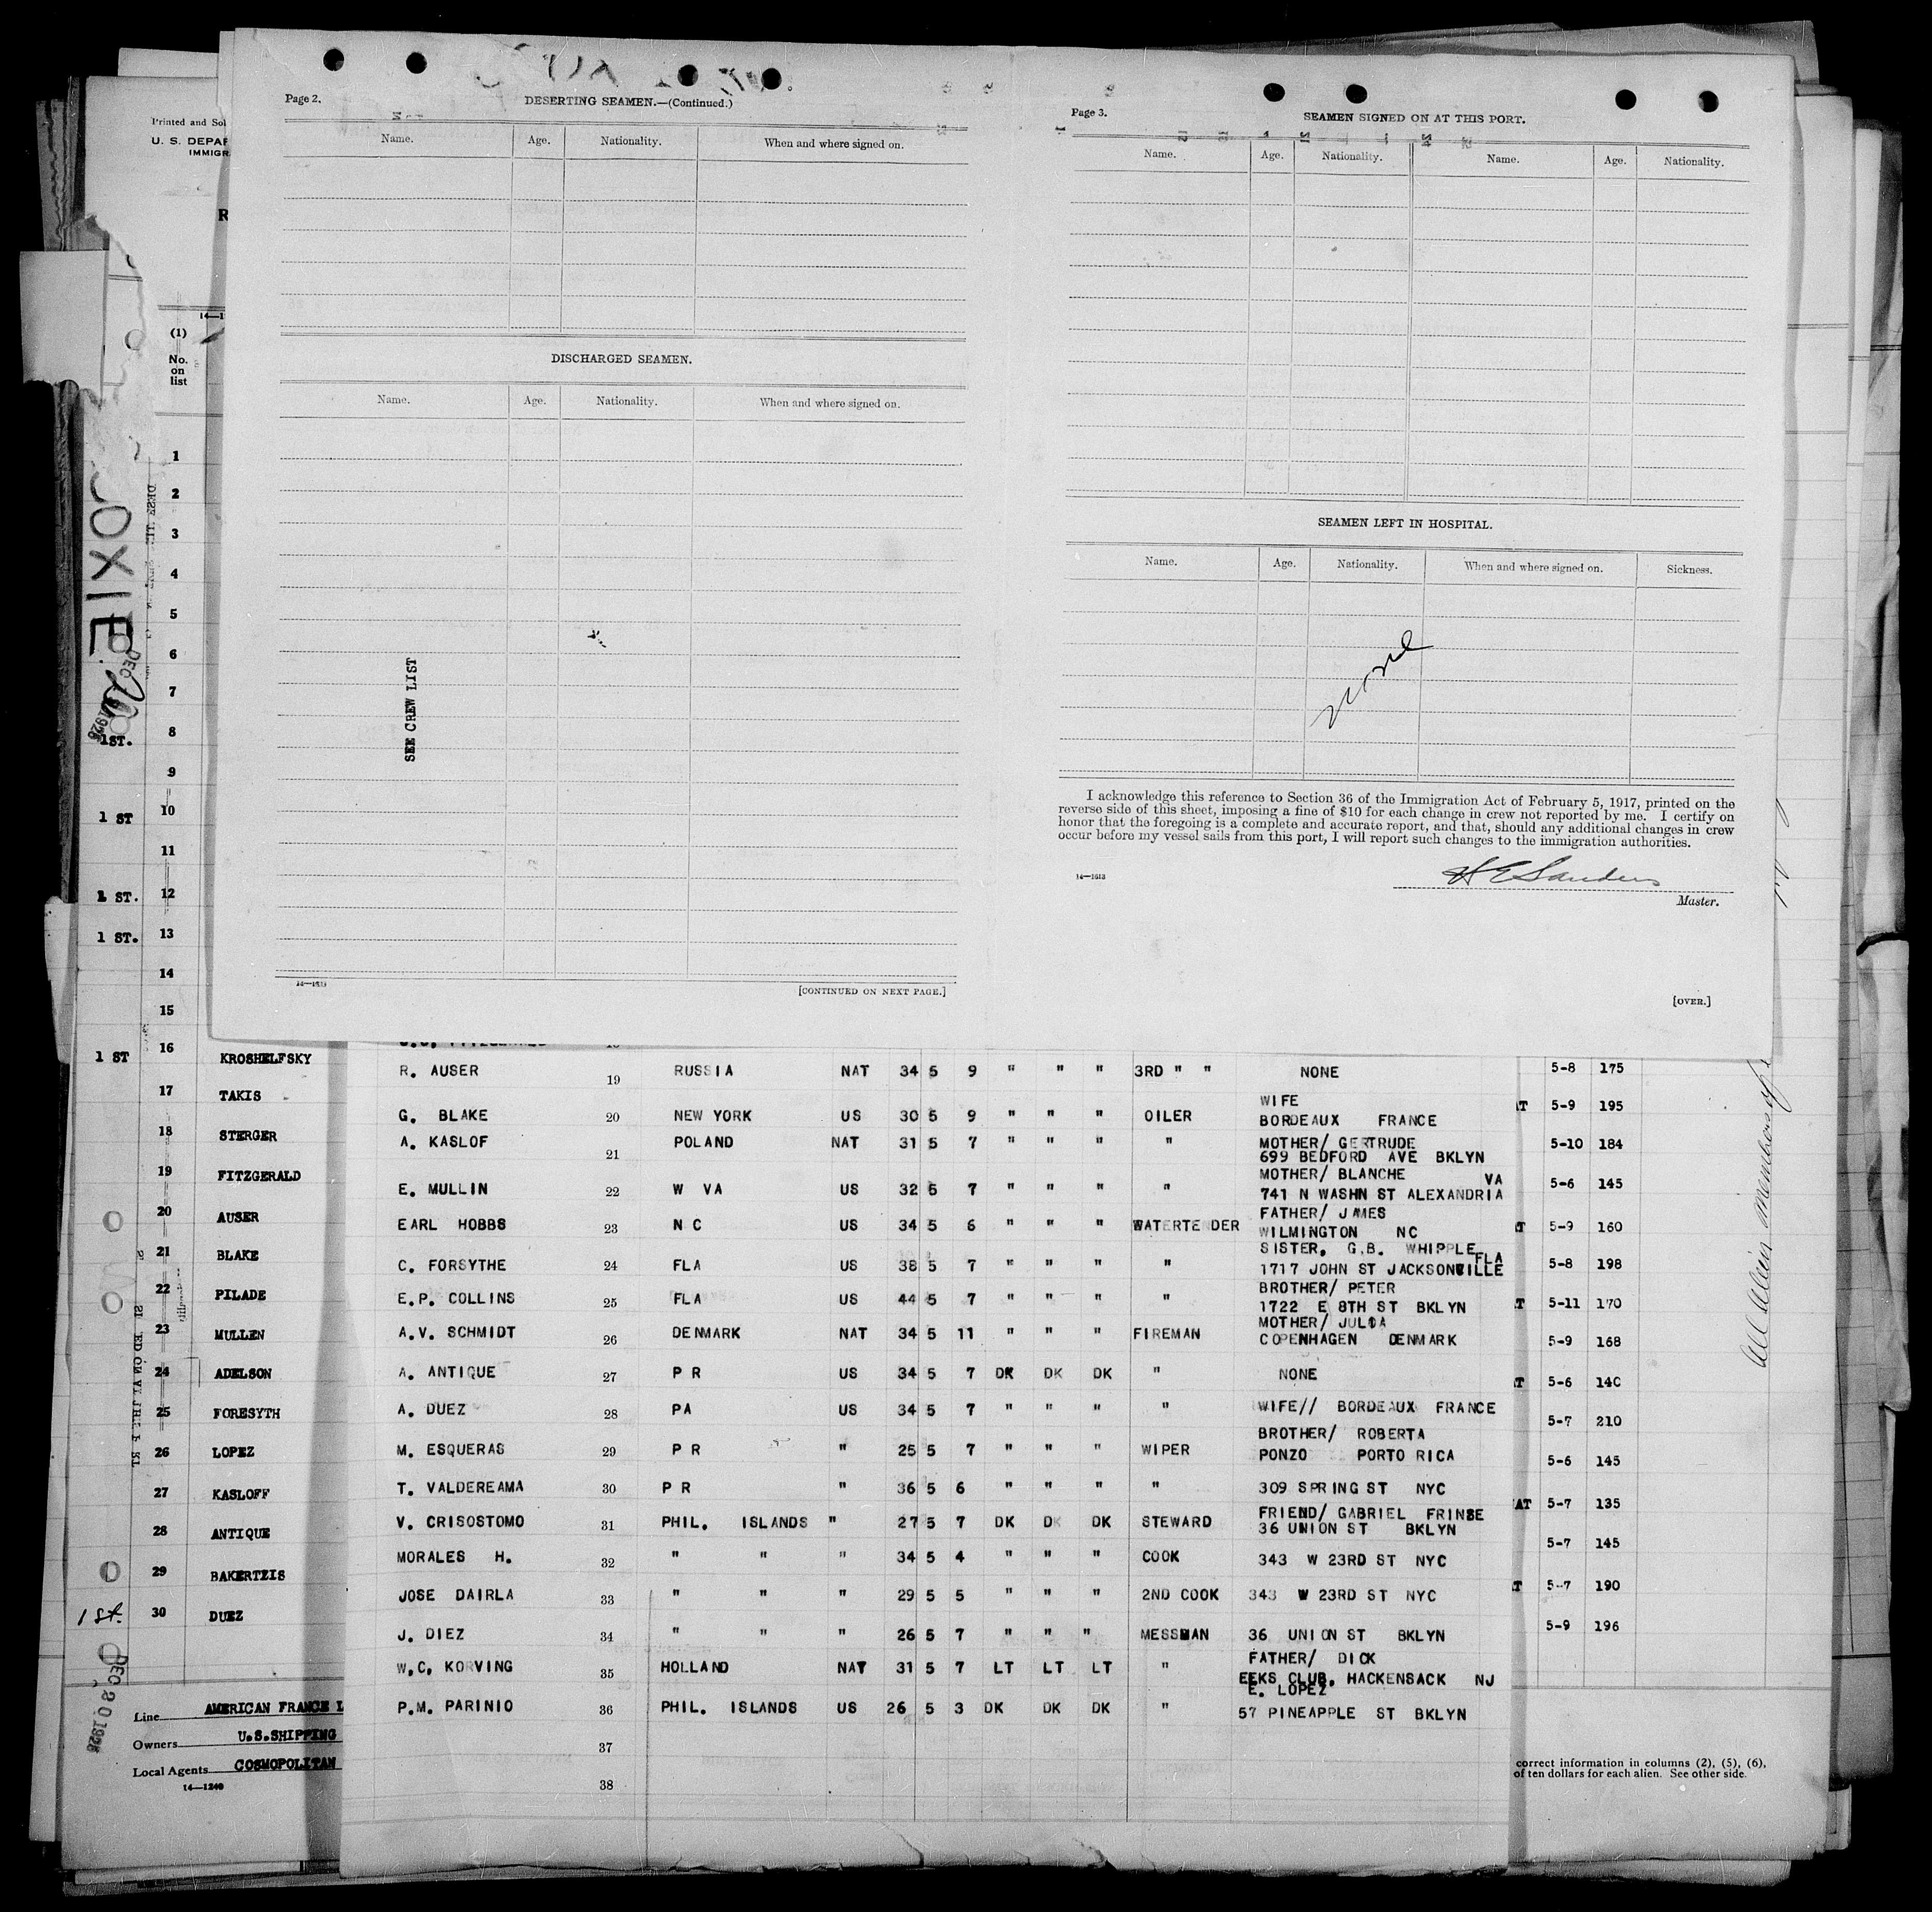 Page 2.
DESERTING SEAMEN.—(Continued.)
Name. Age. Nationality. When and where signed on.
DISCHARGED SEAMEN.
Name. Age. Nationality. When and where signed on.
SEE CREW LIST
14—1613
[CONTINUED ON NEXT PAGE.]
Page 3.
SEAMEN SIGNED ON AT THIS PORT.
Name. Age. Nationality. Name. Age. Nationality.
SEAMEN LEFT IN HOSPITAL.
Name. Age. Nationality. When and where signed on. Sickness.
none
I acknowledge this reference to Section 36 of the Immigration Act of February 5, 1917, printed on the
reverse side of this sheet, imposing a fine of $10 for each change in crew not reported by me. I certify on
honor that the foregoing is a complete and accurate report, and that, should any additional changes in crew
occur before my vessel sails from this port, I will report such changes to the immigration authorities.
14—1613
H E Sanders
Master.
[OVER.]
R. AUSER 19 RUSSIA NAT 34 5 9 " " " 3RD " " NONE
WIFE
G. BLAKE 20 NEW YORK US 30 5 9 " " " OILER BORDEAUX FRANCE
A. KASLOF 21 POLAND NAT 31 5 7 " " " " MOTHER/ GERTRUDE
699 BEDFORD AVE BKLYN
MOTHER/ BLANCHE VA
E. MULLIN 22 W VA US 32 5 7 " " " " 741 N WASHN ST ALEXANDRIA
FATHER/ JAMES
EARL HOBBS 23 N C US 34 5 6 " " " WATERTENDER WILMINGTON NC
SISTER, G.B. WHIPPLE FLA
C. FORSYTHE 24 FLA US 38 5 7 " " " " 1717 JOHN ST JACKSONVILLE
BROTHER/ PETER
E.P. COLLINS 25 FLA US 44 5 7 " " " " 1722 E 8TH ST BKLYN
MOTHER/ JULIA
A.V. SCHMIDT 26 DENMARK NAT 34 5 11 " " " FIREMAN COPENHAGEN DENMARK
A. ANTIQUE 27 P R US 34 5 7 DK DK DK " NONE
A. DUEZ 28 PA US 34 5 7 " " " " WIFE// BORDEAUX FRANCE
BROTHER/ ROBERTA
M. ESQUERAS 29 P R " 25 5 7 " " " WIPER PONZO PORTO RICA
T. VALDEREAMA 30 P R " 36 5 6 " " " " 309 SPRING ST NYC
FRIEND/ GABRIEL FRINSE
V. CRISOSTOMO 31 PHIL. ISLANDS " 27 5 7 DK DK DK STEWARD 36 UNION ST BKLYN
MORALES H. 32 " " " 34 5 4 " " " COOK 343 W 23RD ST NYC
JOSE DAIRLA 33 " " " 29 5 5 " " " 2ND COOK 343 W 23RD ST NYC
J. DIEZ 34 " " " 26 5 7 " " " MESSMAN 36 UNION ST BKLYN
FATHER/ DICK
W.C. KORVING 35 HOLLAND NAT 31 5 7 LT LT LT " EEKS CLUB, HACKENSACK NJ
E. LOPEZ
P.M. PARINIO 36 PHIL. ISLANDS US 26 5 3 DK DK DK " 57 PINEAPPLE ST BKLYN
37
38
Printed and Sol
U. S. DEPAR
IMMIGR
R
14—1
(1)
No.
on
list
1
2
3
4
5
6
7
1ST. 8
9
1 ST 10
11
1 ST. 12
1 ST. 13
14
15
1 ST 16 KROSHELFSKY
17 TAKIS
18 STERGER
19 FITZGERALD
20 AUSER
21 BLAKE
22 PILADE
23 MULLEN
24 ADELSON
25 FORESYTH
26 LOPEZ
27 KASLOFF
28 ANTIQUE
29 BAKERTZIS
1 St. 30 DUEZ
Line AMERICAN FRANCE L
Owners U.S.SHIPPING
Local Agents COSMOPOLITAN
14—1240
COXIE
DEC 20 1928
DEC 20 1928
5-8 175
AT 5-9 195
5-10 184
5-6 145
AT 5-9 160
5-8 198
AT 5-11 170
5-9 168
AT 5-6 140
5-7 210
5-6 145
AT 5-7 135
5-7 145
AT 5-7 190
5-9 196
correct information in columns (2), (5), (6),
of ten dollars for each alien. See other side.
All Alien members of